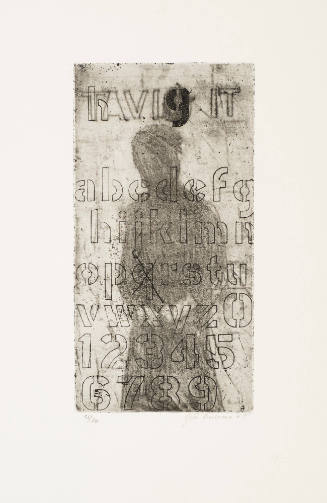 abcdefg
hijklmn
opqrstu
vwxyz0
12345
6789